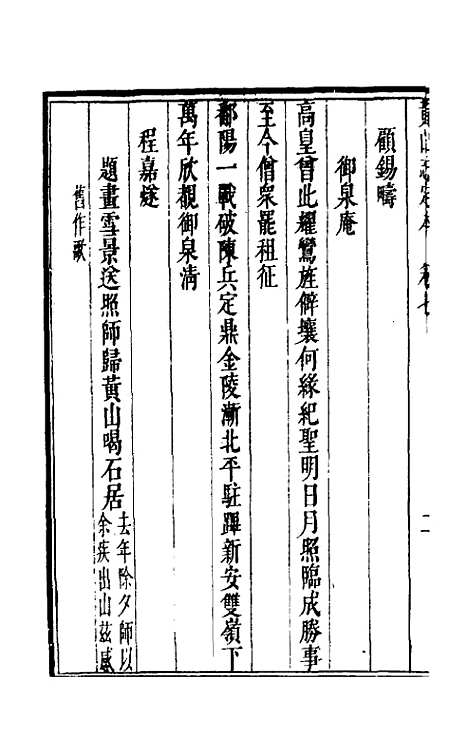 黃山志定本 卷七
二
顧錫疇
御泉庵
高皇曾此耀鸞旌僻壤何緣紀聖明日月照臨成勝事
至今僧眾罷租征
鄱陽一戰破陳兵定鼎金陵漸北平駐蹕新安雙嶺下
萬年欣覩御泉清
程嘉燧
題畫雪景送照師歸黃山喝石居
去年除夕師以
余疾出山茲感
舊作歌